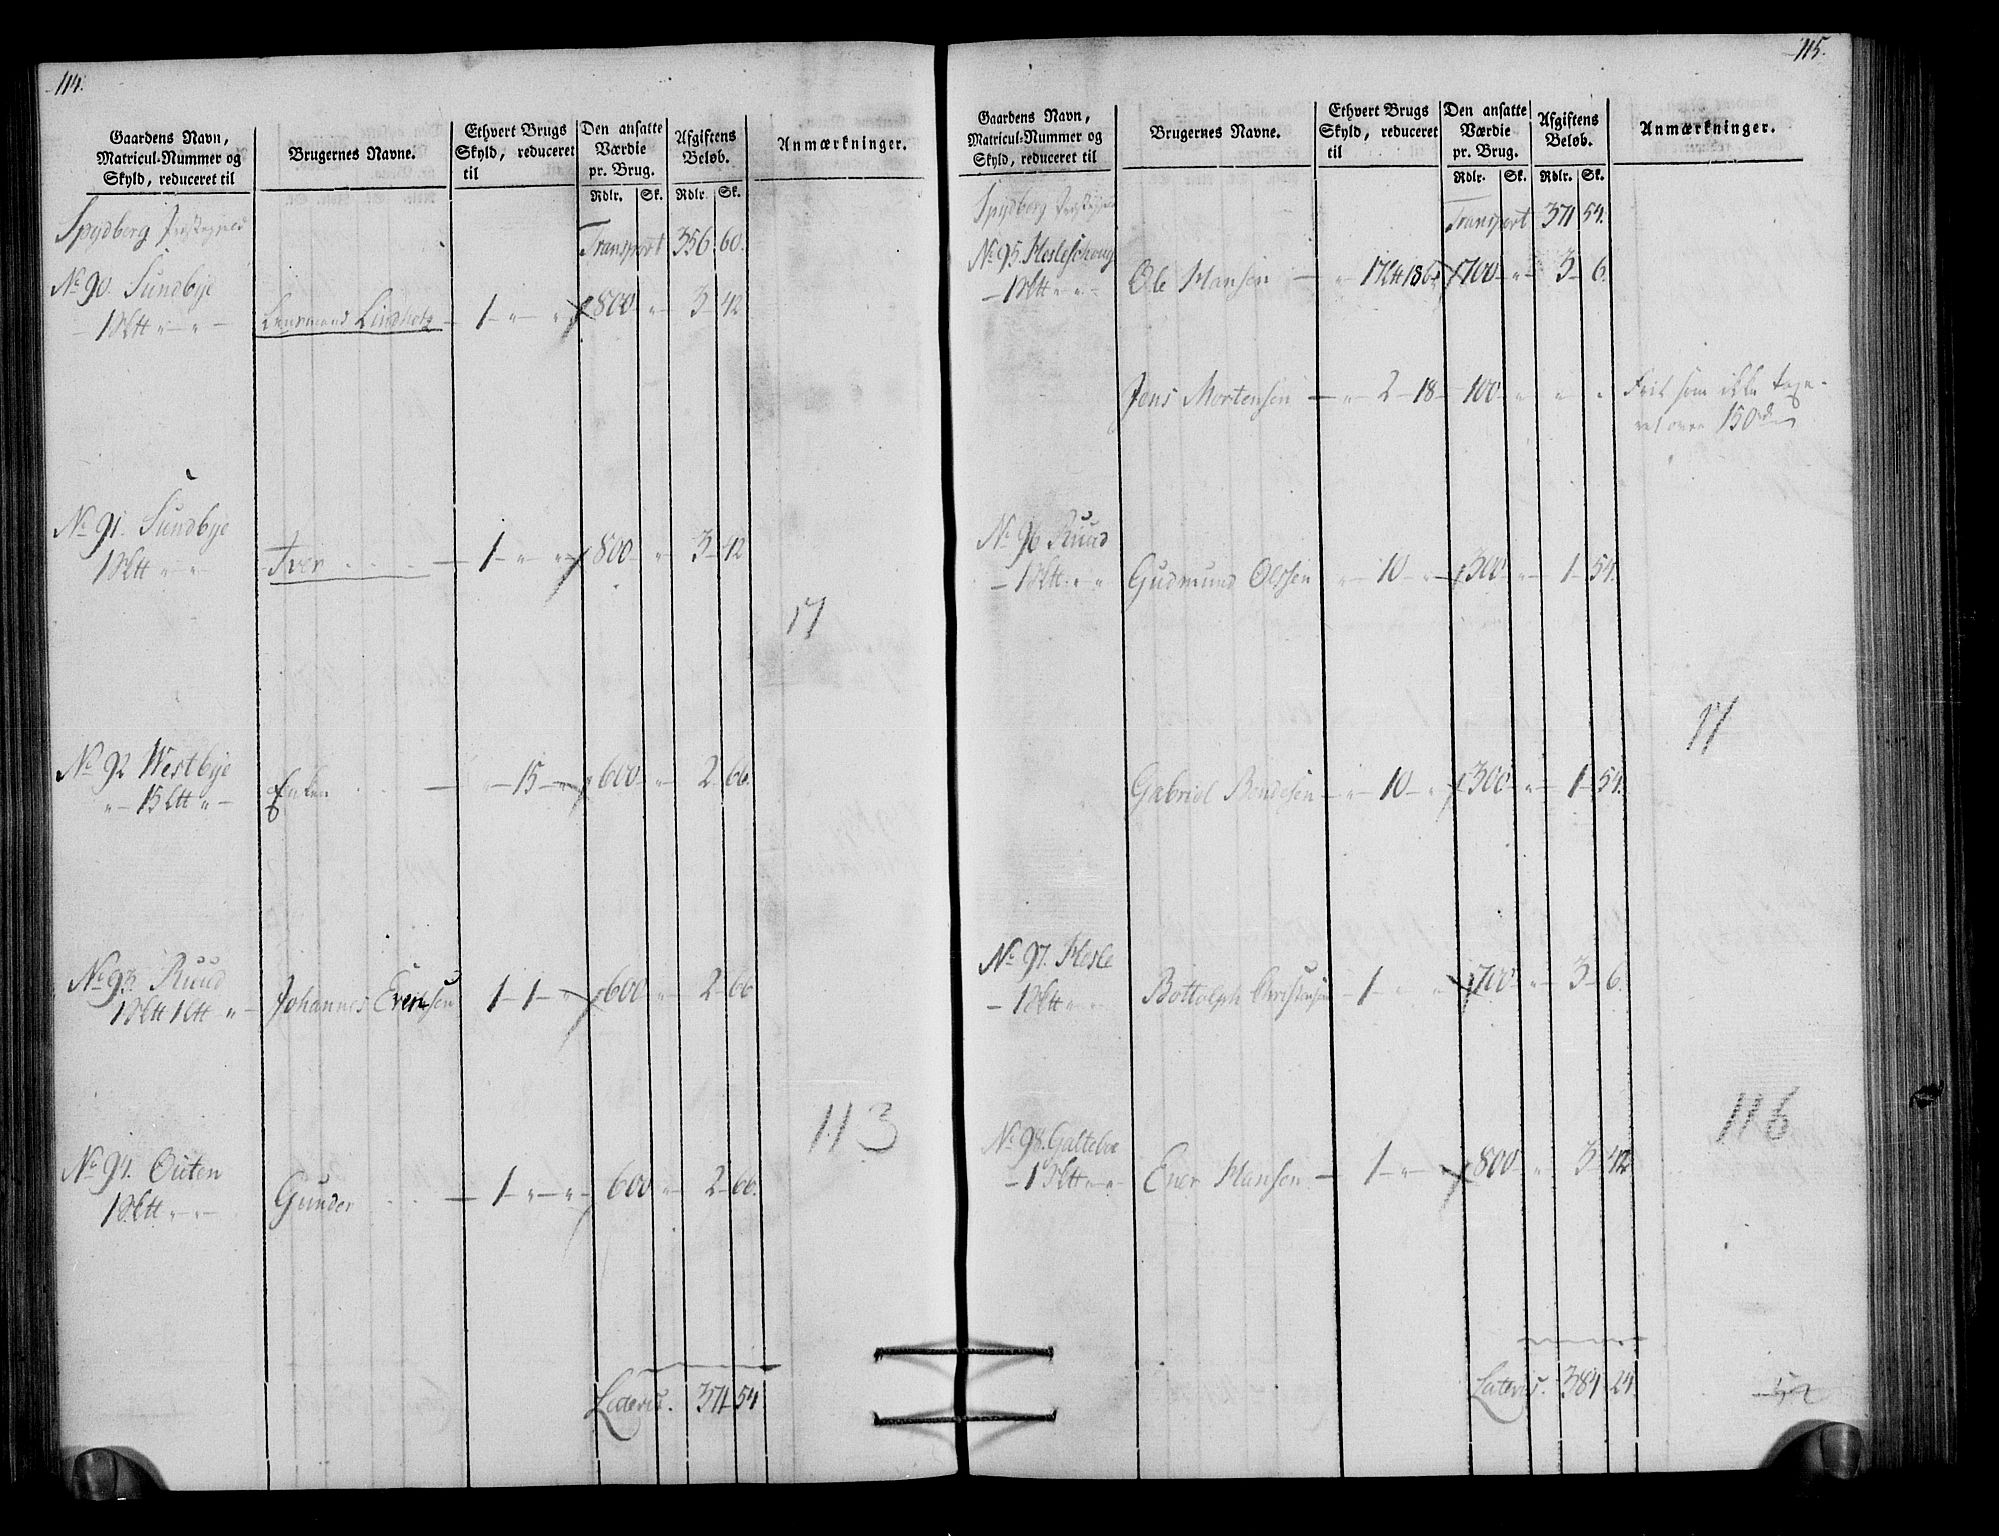 114.
Gaardens Navn, Matricul-Nummer og Skyld, reduceret til
Brugernes Navne.
Ethvert Brugs Skyld, reduceret til
Den ansatte Værdie pr. Brug.
Afgiftens Beløb.
Anmærkninger.
Rdlr. Sk. Rdlr. Sk.
Spydberg
Transport 356 60.
No 90. Sundbye
1 " " Lensmand Lindholz 1 " " 800 " 3 42
No 91. Sundbye
1 " " Iver 1 " " 800 " 3 42
17
No 92 Westbye
" 15 " Enken " 15 " 600 " 2 66
No 93. Ruud
1 1 " Johannes Evensen 1 1 " 600 " 2 66
113
No 94. Outen
1 " " Gunder 1 " " 600 " 2 66.
Lateris. 371 54
115.
Gaardens Navn, Matricul-Nummer og Skyld, reduceret til
Brugernes Navne.
Ethvert Brugs Skyld, reduceret til
Den ansatte Værdie pr. Brug.
Afgiftens Beløb.
Anmærkninger.
Rdlr. Sk. Rdlr. Sk.
Spydberg
Transport 371 54.
No 95. Hesleschoug
1 " " Ole Hansen " 17 18 700 " 3 6.
Jens Mortensen " 2 18 100 " " " Frit som ikke taxe-
ret over 150
No 96 Ruud
1 " " Gudmund Olssen " 10 " 300 " 1 54.
17
Gabriel Bendesen " 10 " 300 " 1 54.
No 97. Hesle
1 " " Bottolph Christensen 1 " " 700 " 3 6.
116
No 98. Galteboe
1 " " Ener Hansen 1 " 800 " 3 42
Lateris. 384 24